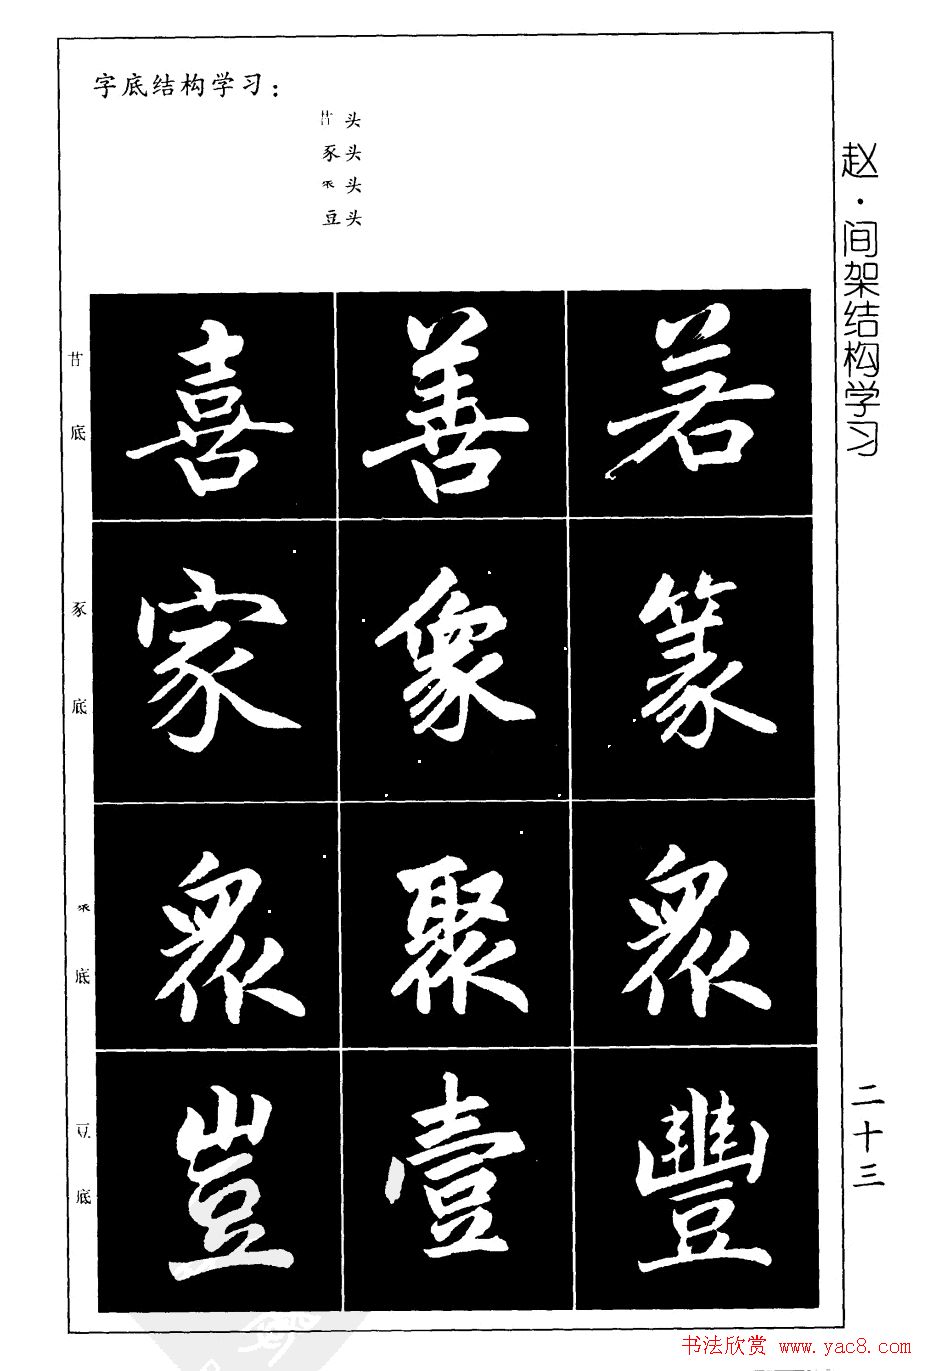 字底结构学习：
头
豕头
头
豆头
赵·间架结构学习
底
喜 善 若
豕底
家 象 篆
底
眾 聚 眾
豆底
豈 壹 豐
二十三
书法欣赏 www.yac8.com